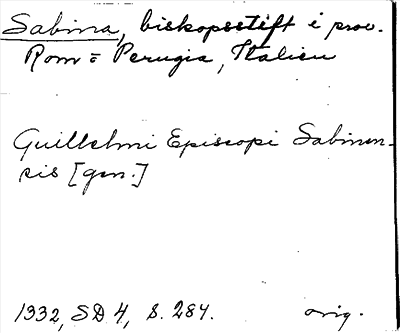 Sabina, biskopsstift i prov.
Rom = Perugia, Italien
Guillelmi Episcopi Sabinen-
sis [gen.]
1332, SD 4, S. 284. orig.